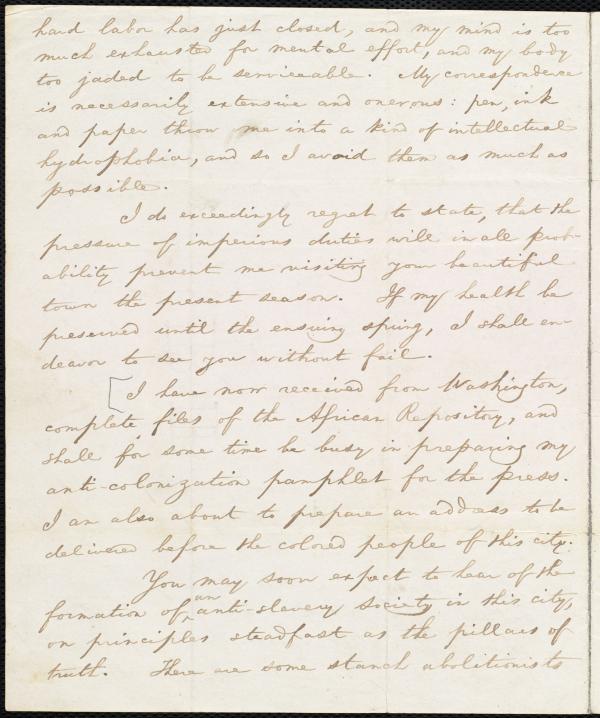 hard labor has just closed, and my mind is too
much exhausted for mental effort, and my body
too jaded to be serviceable. My correspondence
is necessarily extensive and onerous: pen, ink
and paper throw me into a kind of intellectual
hydrophobia, and so I avoid them as much as
possible.
I do exceedingly regret to state, that the
pressure of imperious duties will in all prob-
ability prevent me visiting your beautiful
town the present season. If my health be
preserved until the ensuing spring, I shall en-
deavor to see you without fail.
[I have now received from Washington,
complete files of the African Repository, and
shall for some time be busy in preparing my
anti-colonization pamphlet for the press.
I am also about to prepare an address to be
delivered before the colored people of this city.
You may soon expect to hear of the
formation of an anti-slavery society in this city,
on principles steadfast as the pillars of
truth. There are some stanch abolitionists